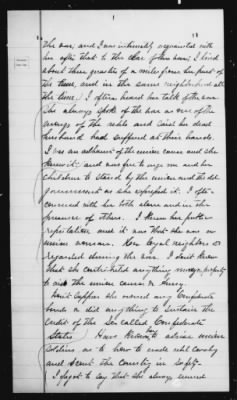 the war, and I was intimately acquainted with
her after that to the close of the war; I lived
about three quarters of a mile from her part of
the time, and in the same neighborhood all
the time. I often heard her talk of the war
She always spoke of the war as one of the
of the and said he and
husband had suffered at their hands.
I was an adherent of the union cause and she
knew it, and was free to urge me and her
children to stand by the union and the old
government as she expressed it. I often
conversed with her both alone and in the
presence of others. I knew her public
reputation and it was that she was a
union woman. Her loyal neighbors so
regarded her during the war. I don't know
that she contributed anything money or property
to aid the union cause or Army.
Don't suppose she owned any Confederate
bonds or did anything to sustain the
credit of the so called Confederate
States. Have known to advise union
soldiers as to how to evade rebel cavalry
and scout the country in safety.
I forgot to say that she always